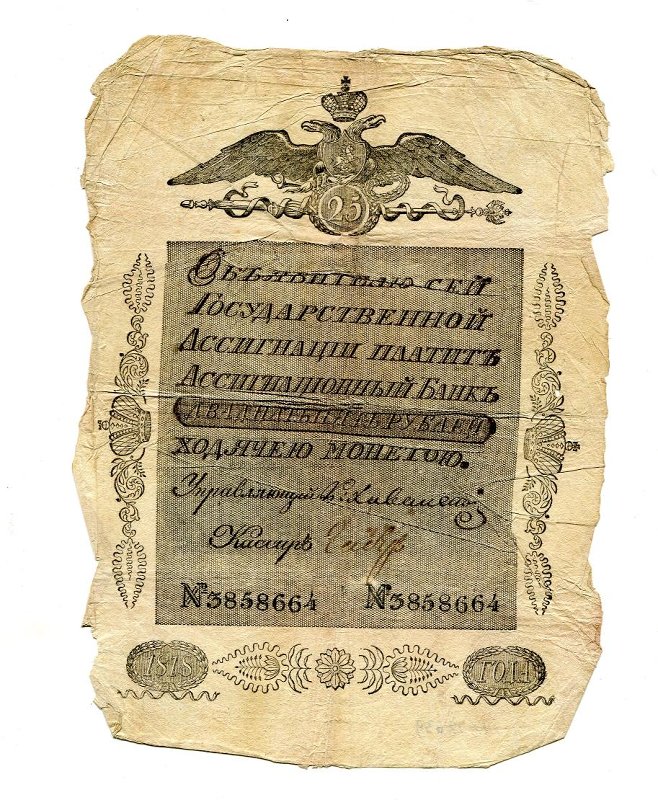 25
Объявителю сей
Государственной
Ассигнаціи платитъ
Ассигнаціонный Банкъ
двадцать пять рублей
ходячею монетою.
Управляющій
Кассиръ
№3858664 №3858664
1818 ГОДА